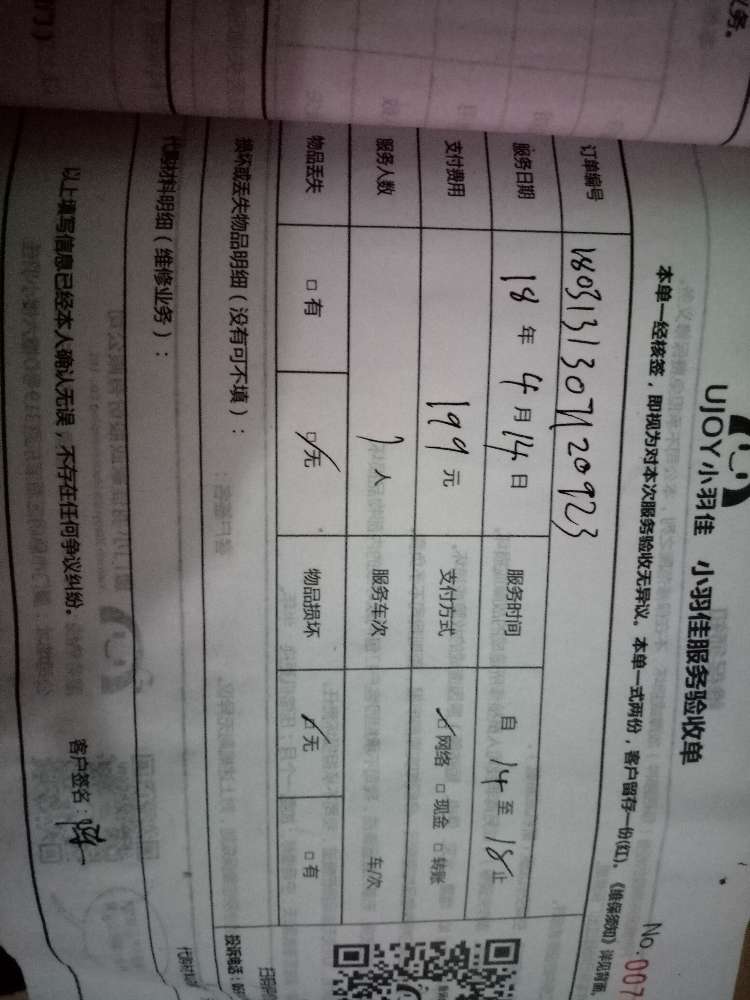 UJOY小羽佳 小羽佳服务验收单
No.007
本单一经核签，即视为对本次服务验收无异议。本单一式两份，客户留存一份(红)。《维保须知》详见背面。
订单编号 18031313071120923
服务日期 18年4月14日 服务时间 自14至18止
支付费用 199元 支付方式 ☑网络 □现金 □转账
服务人数 1人 服务车次 车/次
物品丢失 □有 ☑无 物品损坏 ☑无 □有
损坏或丢失物品明细（没有可不填）：
投诉电话：
代购材料明细（维修业务）：
以上填写信息已经本人确认无误，不存在任何争议纠纷。 客户签名：陈